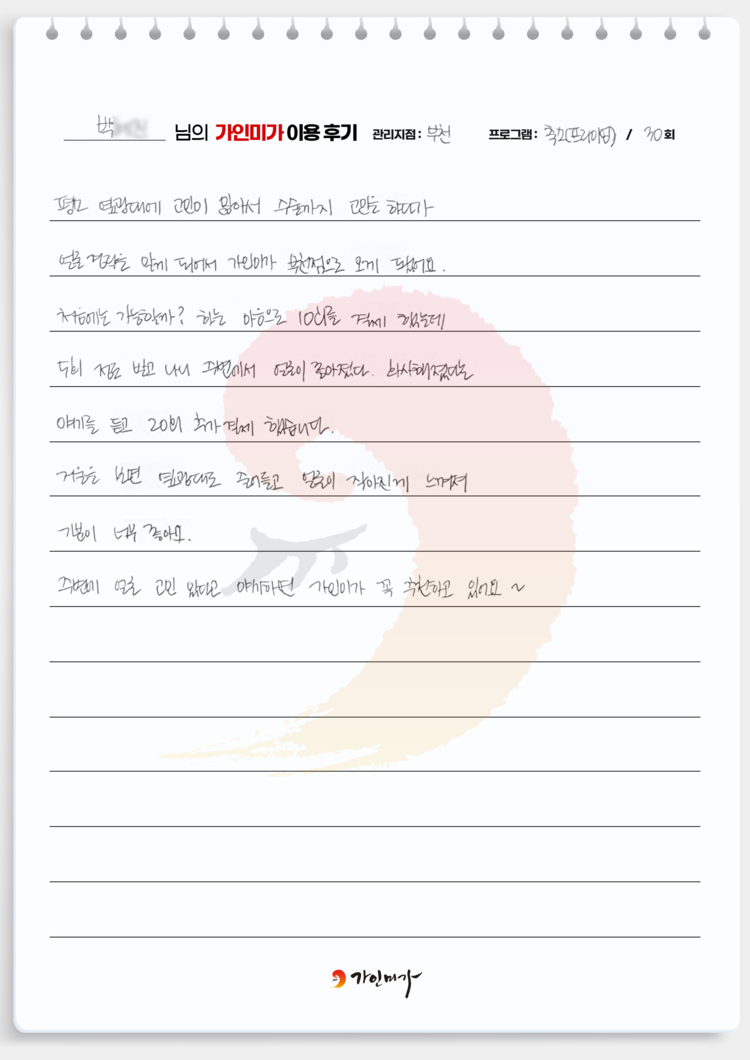 박 님의 가인미가 이용 후기 관리지점 : 부천 프로그램 : 축소(프리미엄) / 30회
평소 옆광대에 고민이 많아서 수술까지 고민을 하다가
얼굴경락을 알게 되어서 가인미가 부천점으로 오게 됐어요.
처음에는 가능할까? 하는 마음으로 10회를 결제 했는데
5회 정도 받고 나니 주변에서 얼굴이 좋아졌다. 화사해졌다는
얘기를 듣고 20회 추가결제 했습니다.
거울을 보면 옆광대도 줄어들고 얼굴이 작아진게 느껴져
기분이 너무 좋아요.
주변에 얼굴 고민 있다고 얘기하면 가인미가 꼭 추천하고 있어요 ~
가인미가